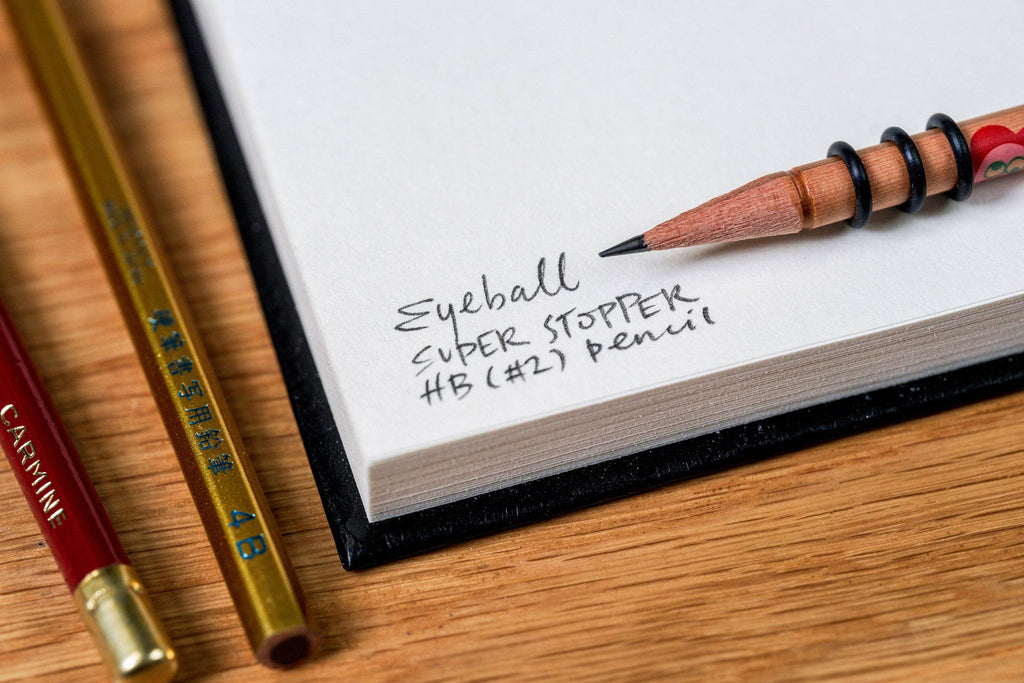 Eyeball
SUPER STOPPER
HB (#2) pencil
CARMINE
硬筆書写用鉛筆 4B